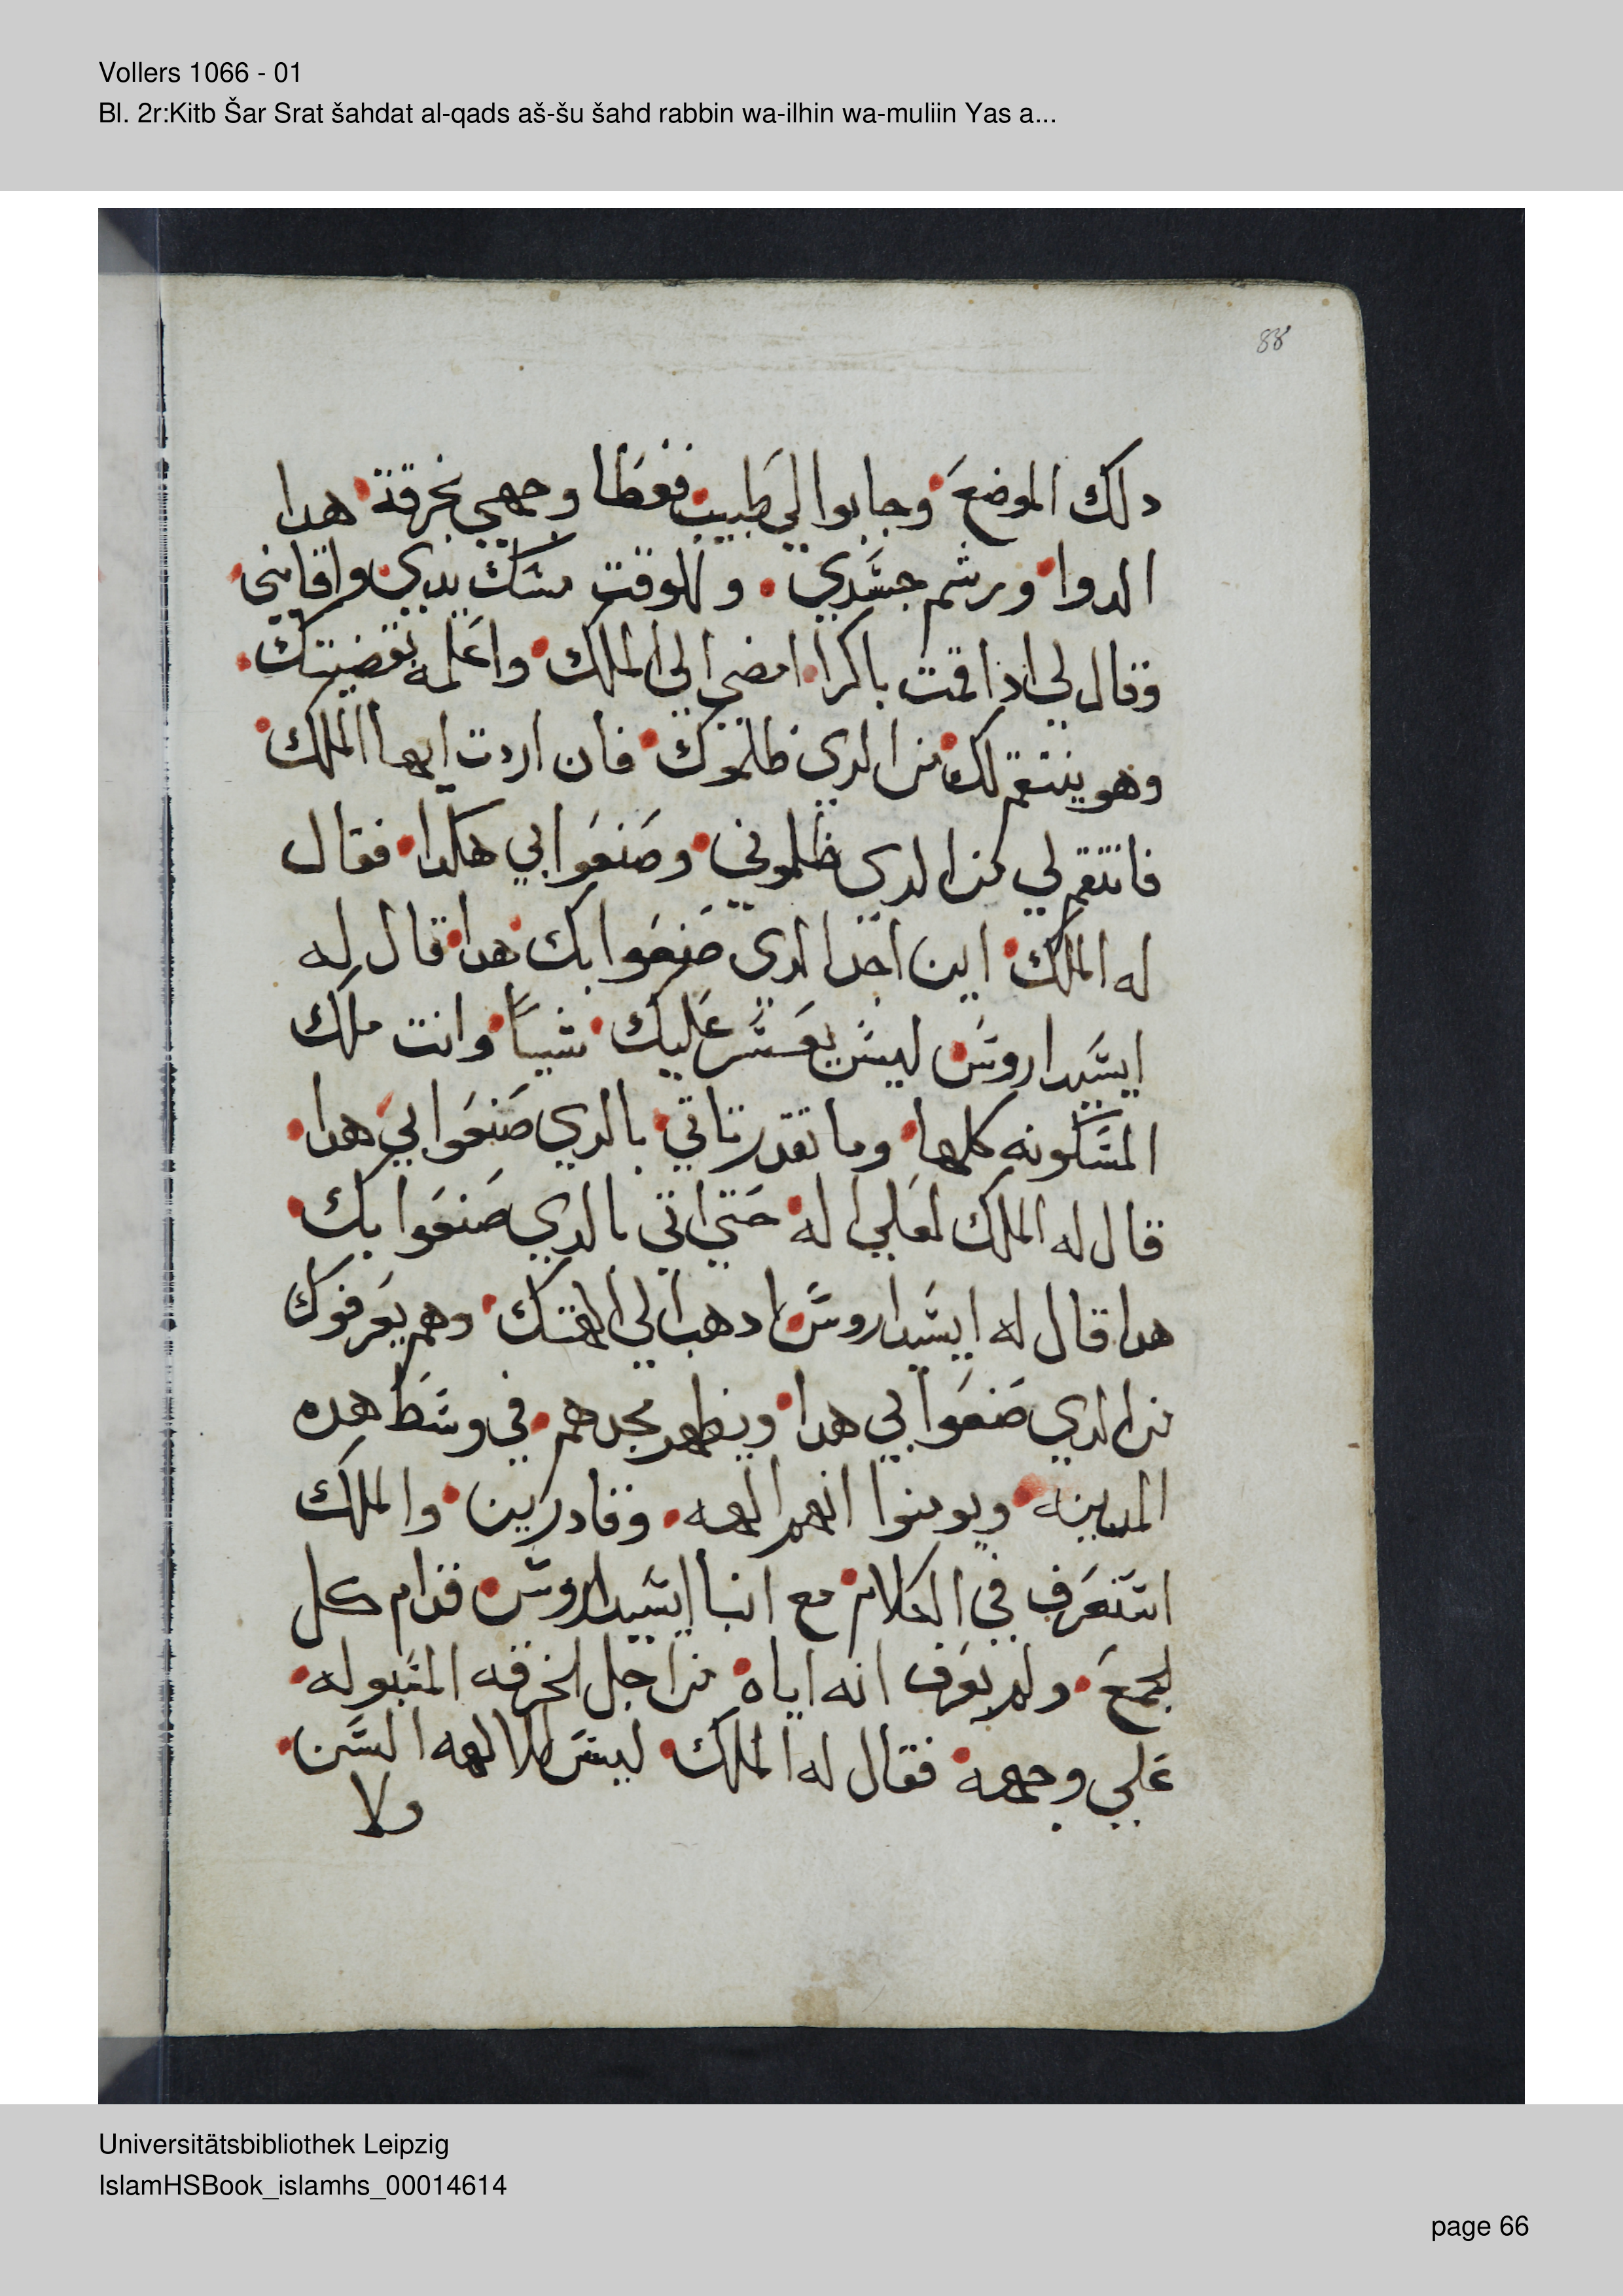 Vollers 1066 - 01
Bl. 2r:Kitb Šar Srat šahdat al-qads aš-šu šahd rabbin wa-ilhin wa-muliin Yas a...
88
دلك الموضع وجابوا لي طبيب فغطا وجهي بخرقة هدا
الدوا ورشم جسدي وللوقت مسك بيدي واقامني
وقال لي اذا قمت باكرا امضي الي الملك واعلمه بقضيتك
وهو ينتقم لك من الدي ظلموك فان اردت ايها الملك
فانتقم لي من الدي ظلموني وصنعوا بي هكدا فقال
له الملك اين اجد الدي صنعوا بك هدا قال له
ايسيداروس ليس يعسر عليك شيا وانت ملك
المسكونه كلها وما تقدر تاتي بالدي صنعوا بي هدا
قال له الملك لعلي اله حتي اتي بالدي صنعوا بك
هدا قال له ايسيداروس ادهب الي الهتك وهم يعرفوك
من الدي صنعوا بي هدا ويظهر مجدهم في وسط هده
المدينه ويومنوا انهم الهه وقادرين والملك
استعرف في الكلام مع انبا ايسيداروس قدام كل
الجمع ولم يعرف انه اياه من اجل الخرقه المبوله
علي وجهه فقال له الملك ليس للالهه السن
ولا
Universitätsbibliothek Leipzig
IslamHSBook_islamhs_00014614
page 66